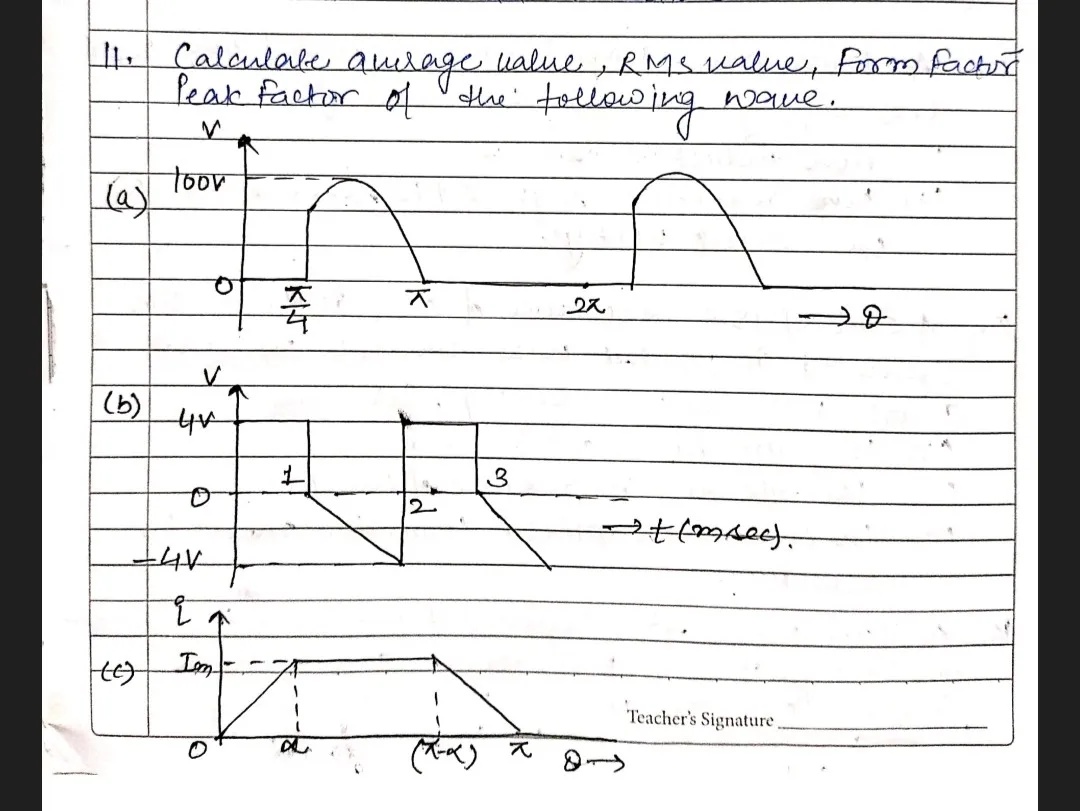 11. Calculate average value, RMS value, Form factor
Peak factor of the following wave.
V
(a)
100V
0
π/4
π
2π
→ θ
V
(b)
4V
1
3
0
2
→ t(msec).
-4V
i
(c)
Im
Teacher's Signature
0
α
(π-α)
π
θ→